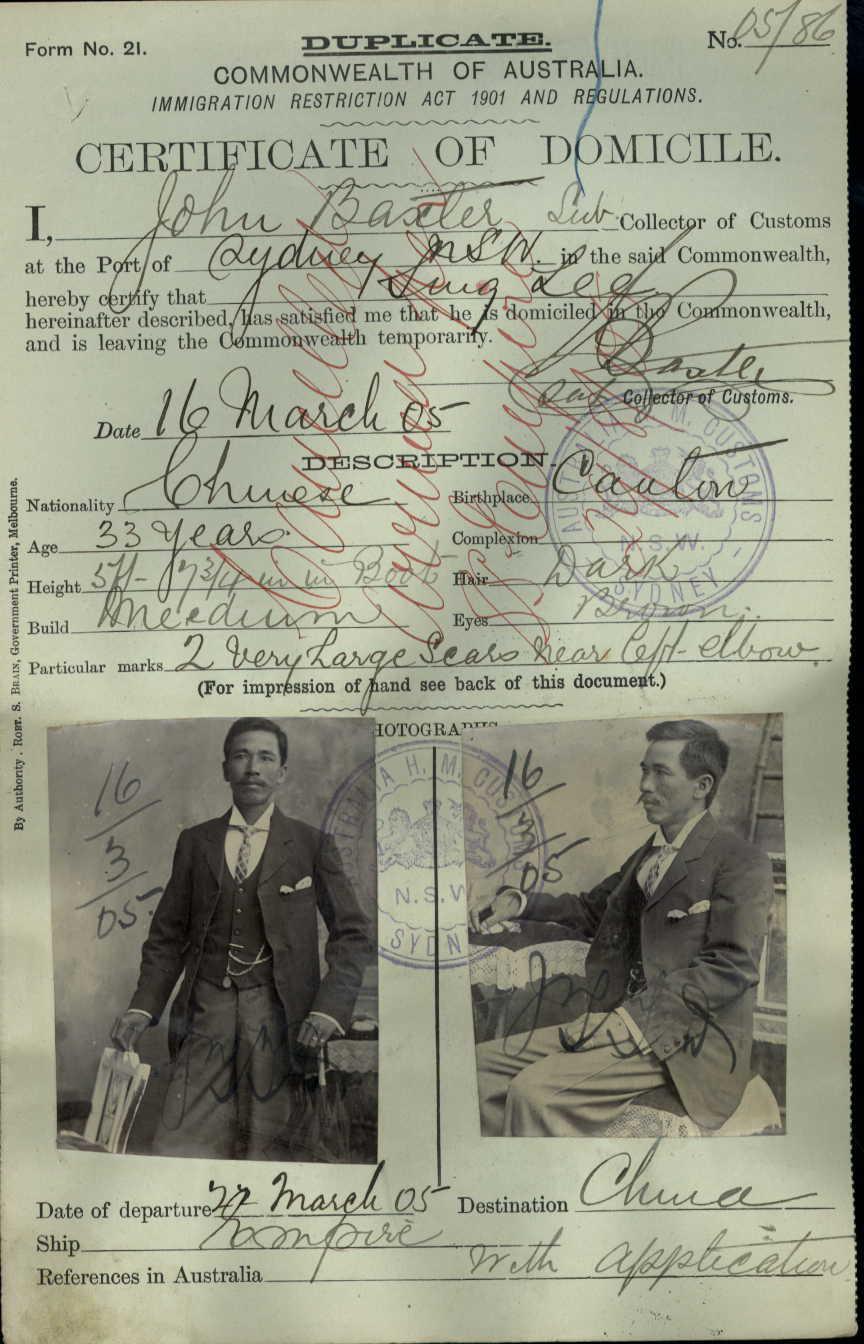 Form No. 21.
DUPLICATE.
No. 05/86
COMMONWEALTH OF AUSTRALIA.
IMMIGRATION RESTRICTION ACT 1901 AND REGULATIONS.
CERTIFICATE OF DOMICILE.
I, John Baxter Sub. Collector of Customs
at the Port of Sydney NSW. in the said Commonwealth,
hereby certify that Lee
hereinafter described, has satisfied me that he is domiciled in the Commonwealth,
and is leaving the Commonwealth temporarily.
Baxter
Sub Collector of Customs.
Date 16 March 05
DESCRIPTION.
Nationality Chinese
Birthplace Canton
Age 33 years.
Complexion
Height 5ft- 7 3/4 in in Boots
Hair Dark
Build Medium
Eyes Brown.
Particular marks 2 Very Large Scars near left elbow.
(For impression of hand see back of this document.)
HOTOGRAPHS
16/3/05
16/3/05
AUSTRALIA H. M. CUSTOMS
N.S.W.
SYDNEY
AUSTRALIA H. M. CUSTOMS
N.S.W.
SYDN
Date of departure 27 March 05
Destination China
Ship Empire
References in Australia With application
By Authority: ROBT. S. BRAIN, Government Printer, Melbourne.